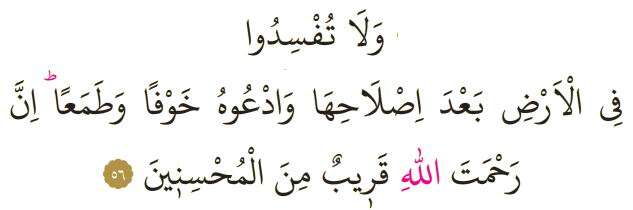 وَلَا تُفْسِدُوا
فِى الْاَرْضِ بَعْدَ اِصْلَاحِهَا وَادْعُوهُ خَوْفًا وَطَمَعًاؕ اِنَّ
رَحْمَتَ اللّٰهِ قَر۪يبٌ مِنَ الْمُحْسِن۪ينَ ٥٦